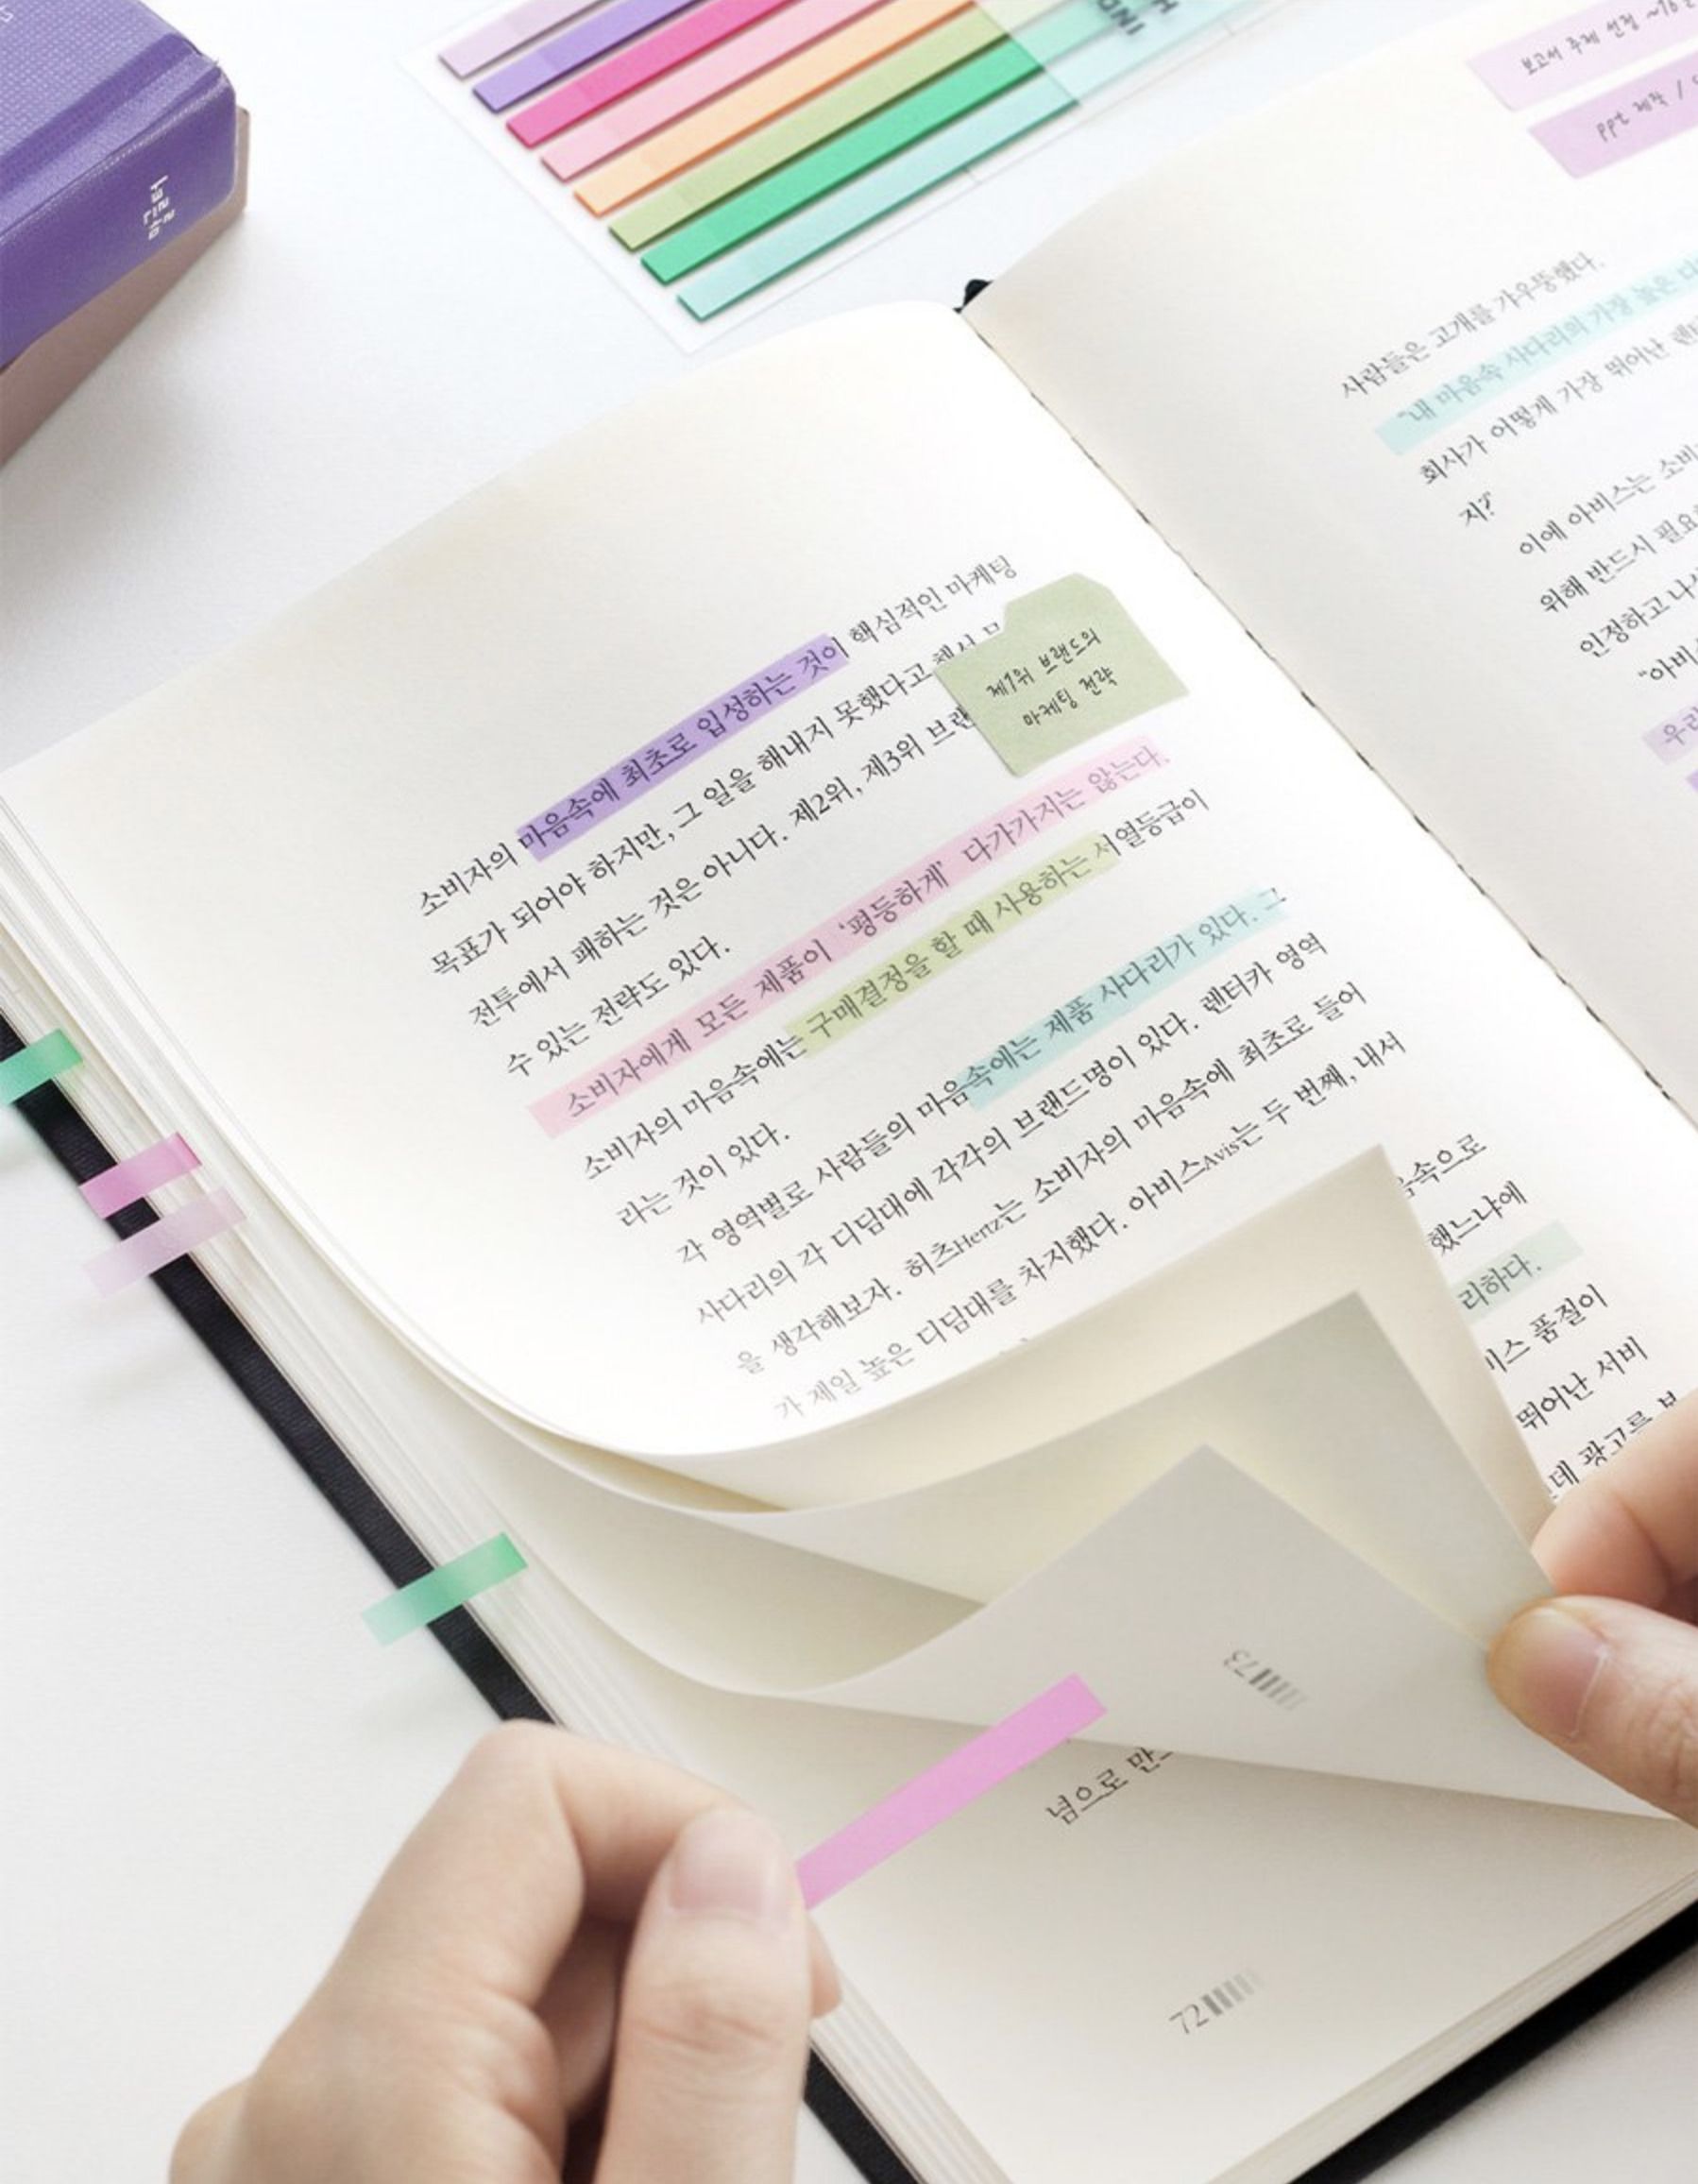 보고서 주제 선정
ppt 제작 /
제1위 브랜드의
마케팅 전략
소비자의 마음속에 최초로 입성하는 것이 핵심적인 마케팅
목표가 되어야 하지만, 그 일을 해내지 못했다고 해서
전투에서 패하는 것은 아니다. 제2위, 제3위
수 있는 전략도 있다.
소비자에게 모든 제품이 ‘평등하게’ 다가가지는 않는다.
소비자의 마음속에는 구매결정을 할 때 사용하는 서열등급이
라는 것이 있다.
각 영역별로 사람들의 마음속에는 제품 사다리가 있다. 그
사다리의 각 디딤대에 각각의 브랜드명이 있다. 렌터카 영역
을 생각해보자. 허츠Hertz는 소비자의 마음속에 최초로 들어
가 제일 높은 디딤대를 차지했다. 아비스Avis는 두 번째, 내셔
음속으로
했느냐에
리하다.
비스 품질이
뛰어난 서비
데 광고를
73
넘으로
72
사람들은 고개를 갸우뚱했다.
“내 마음속 사다리의 가장 높은
회사가 어떻게 가장 뛰어난
지?’
이에 아비스는
위해 반드시
인정하고
“아비스
우리